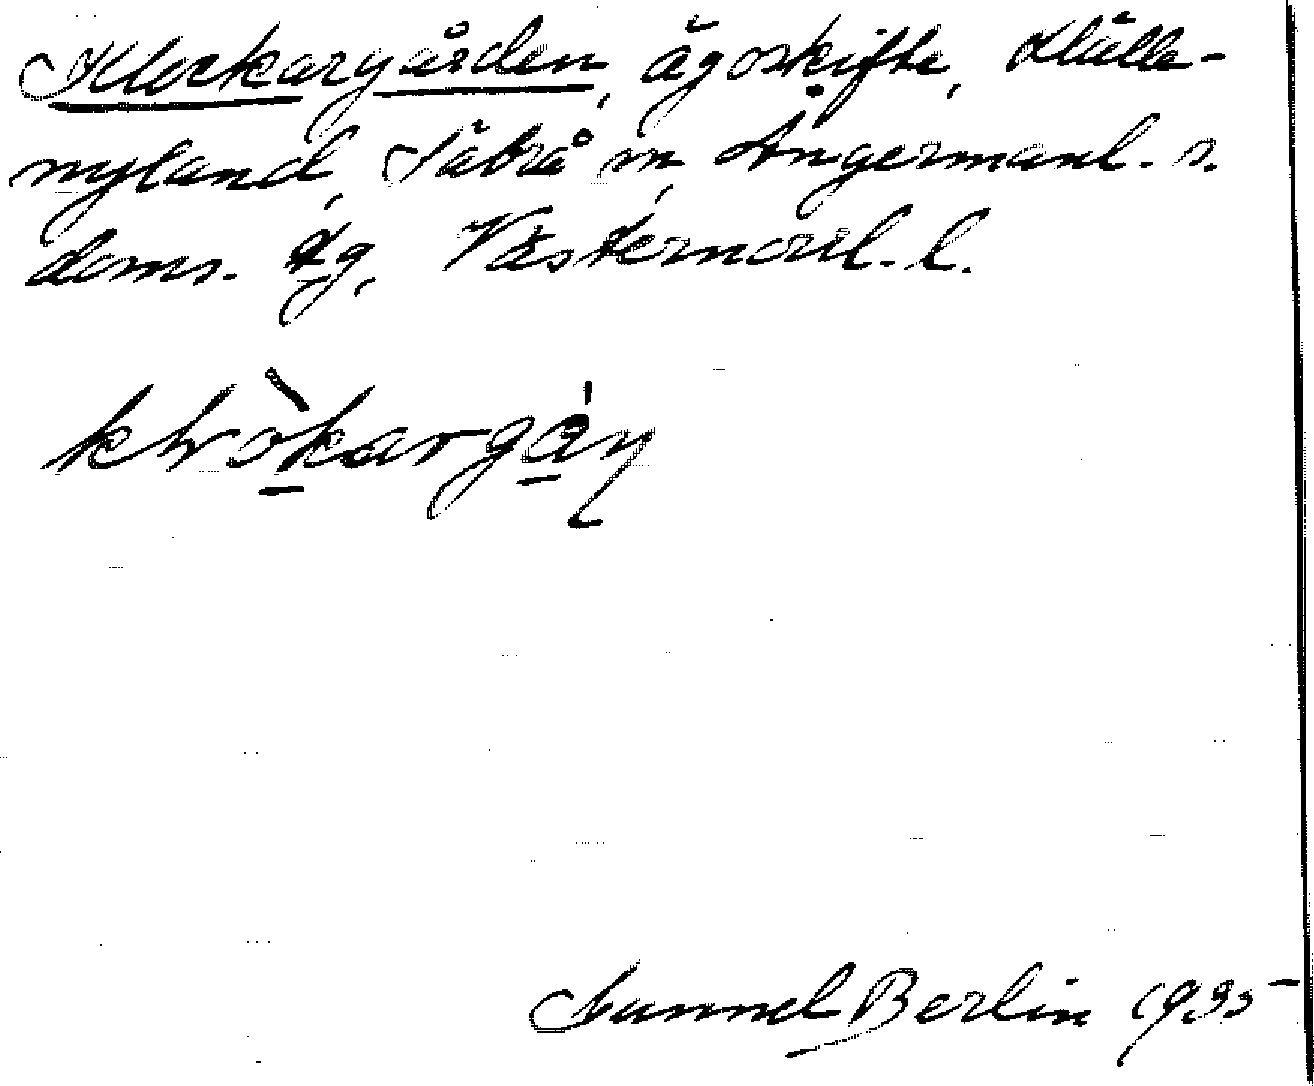 Klockargården, ägoskifte, Hälle-
nyland, Säbrå sn, Ångermanl. s.
doms. tg, Västernorrl. l.
Gunnel Berlin 1935